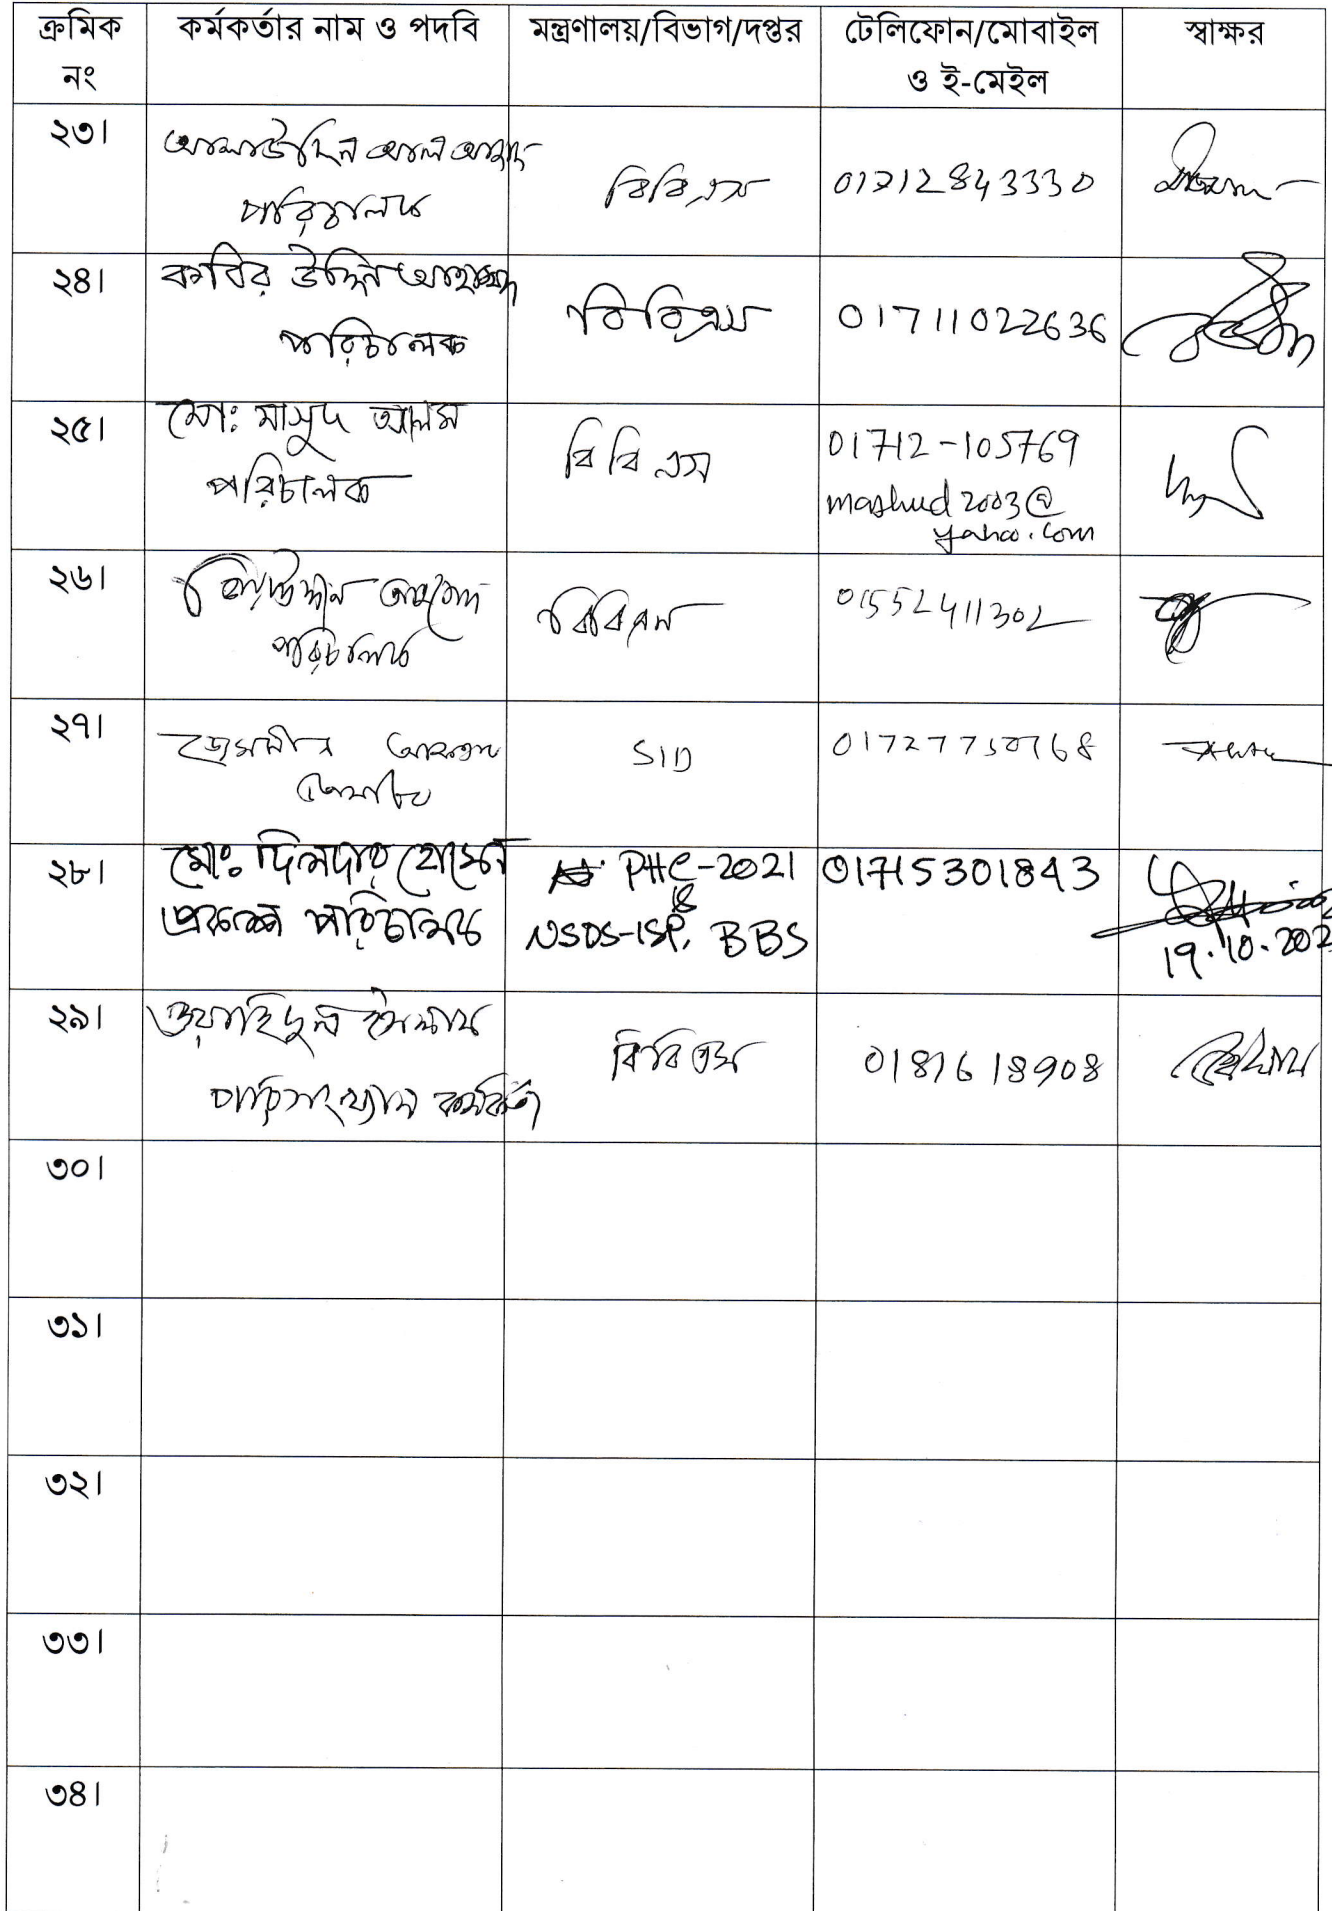 ক্রমিক নং কর্মকর্তার নাম ও পদবি মন্ত্রণালয়/বিভাগ/দপ্তর টেলিফোন/মোবাইল ও ই-মেইল স্বাক্ষর
২৩।
পরিচালক
বিবিএস
01712843330
২৪। কবির উদ্দিন আহাম্মদ
পরিচালক
বিবিএস
01711022636
২৫। মো: মাসুদ আলম
পরিচালক
বিবিএস
01712-105769
mashud2003@
yahoo.com
২৬।
পরিচালক
বিবিএস
01552411302
২৭।
SID
২৮। মোঃ দিলদার হোসেন
প্রকল্প পরিচালক
PHC-2021
&
NSDS-ISP, BBS
01715301843
19.10.202
২৯। ওয়াহিদুল ইসলাম
পরিসংখ্যান কর্মকর্তা
বিবিএস
01816618908
৩০।
৩১।
৩২।
৩৩।
৩৪।